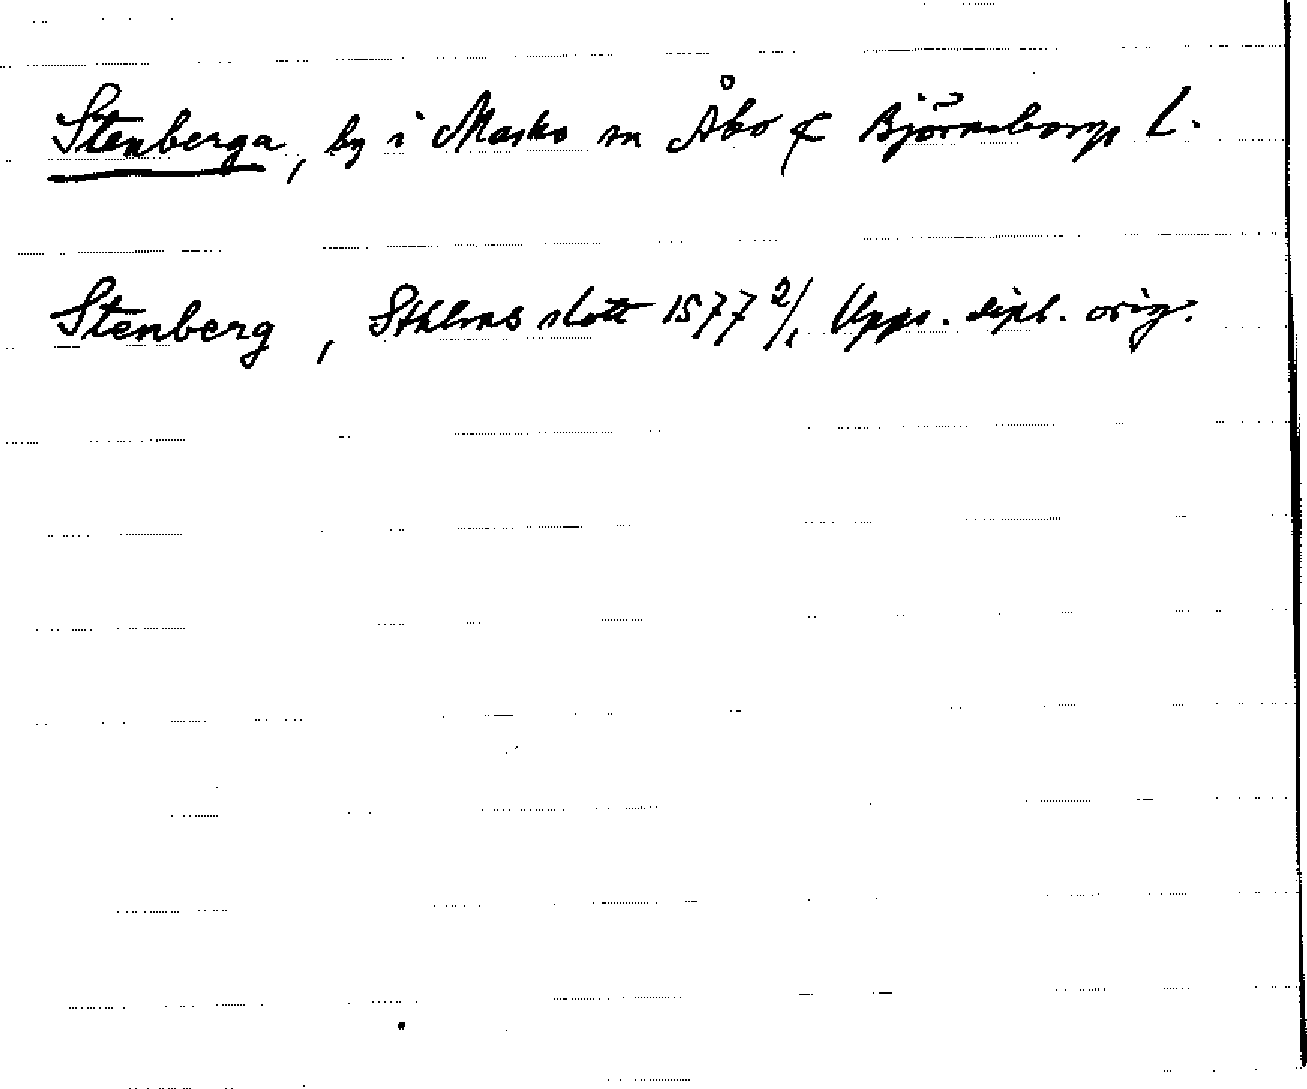 Stenberga, by i Masko sn Åbo & Björneborgs L.
Stenberg, Sthlms slott 1577 2/1 Upps. dipl. orig.